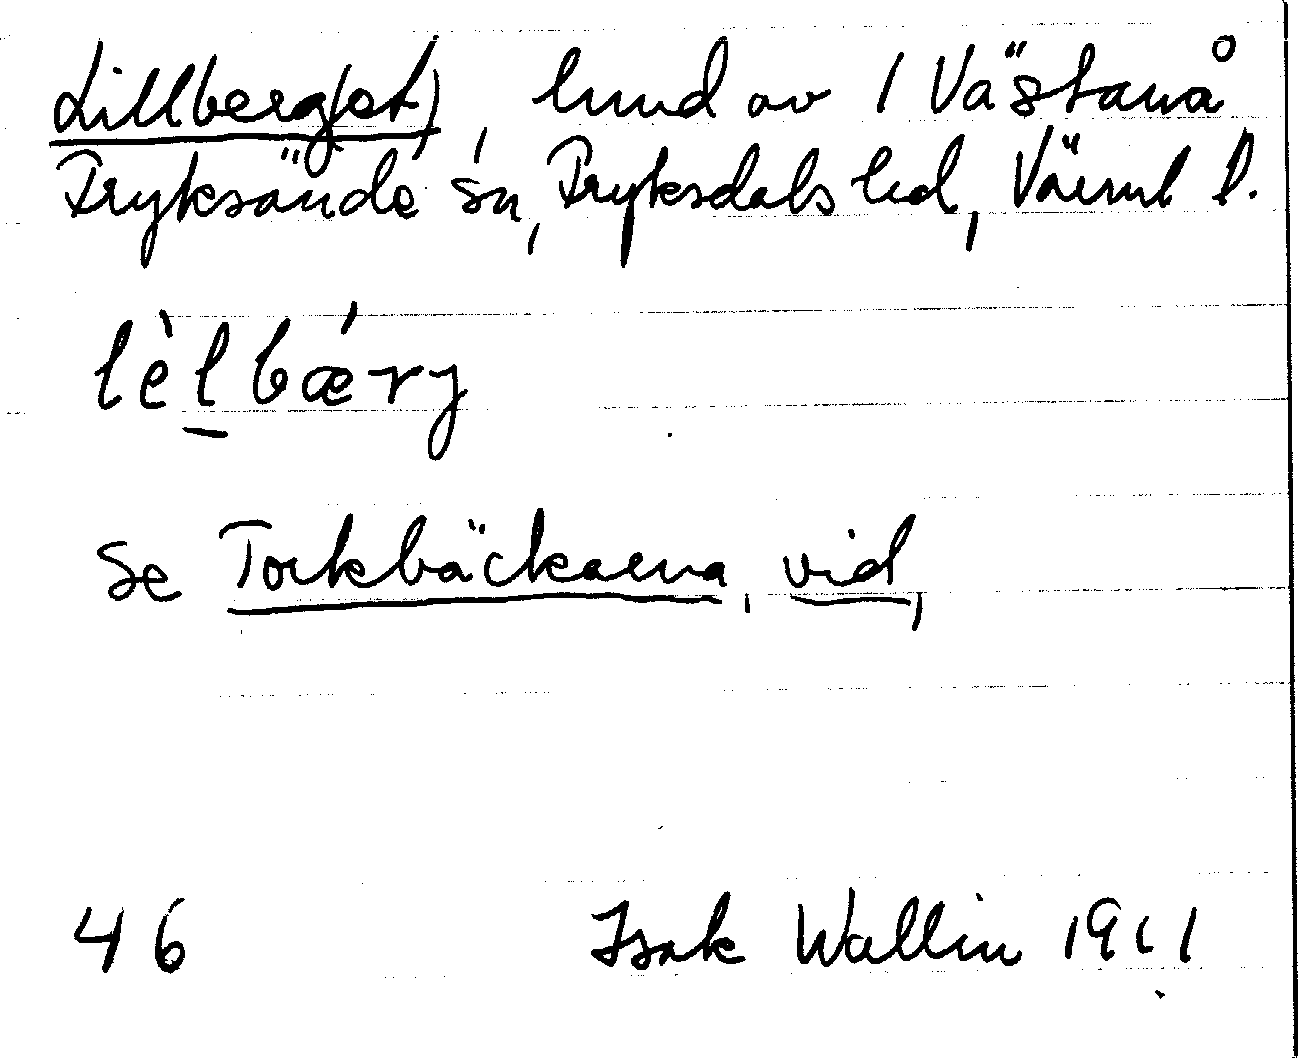 Lillberg(et), hmd av 1 Västanå
Fryksände sn, Fryksdals hd, Värml l.
lèlbǽrj
se Torkbäckarna, vid,
46 Isak Wallin 1911